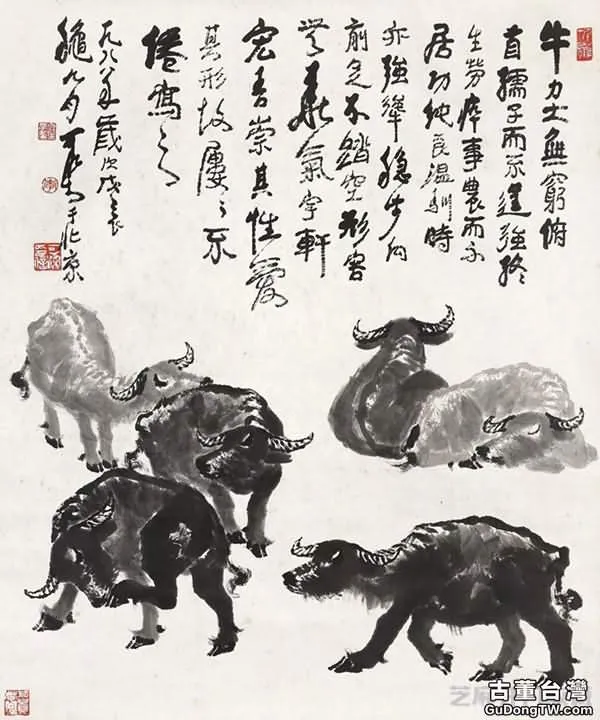 牛力大無窮俯
首孺子而不逞強終
生勞瘁事農而不
居功純良溫馴時
亦強犟穩步向
前足不踏空形容
無華氣宇軒
宏吾崇其性愛
其形故屢々不
倦寫之
一九八八年歲次戊辰
龝九月可染于北京
古董台灣
GuDongTW.com